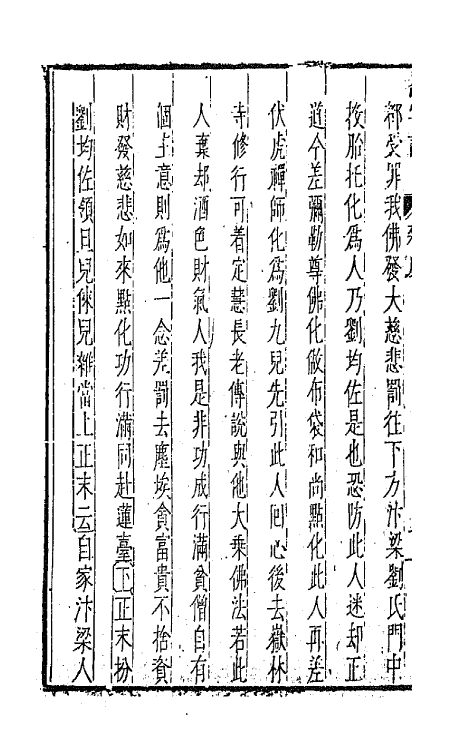 都受罪我佛發大慈悲罰往下方汴梁劉氏門中
投胎托化爲人乃劉均佐是也恐防此人迷却正
道今差彌勒尊佛化做布袋和尚點化此人再差
伏虎禪師化爲劉九兒先引此人囘心後去嶽林
寺修行可着定慧長老傳說與他大乘佛法若此
人棄却酒色財氣人我是非功成行滿貧僧自有
個主意則爲他一念差罰去塵埃貪富貴不捨貲
財發慈悲如來點化功行滿同赴蓮臺下正末扮
劉均佐領旦兒倈兒雜當上正末云自家汴梁人